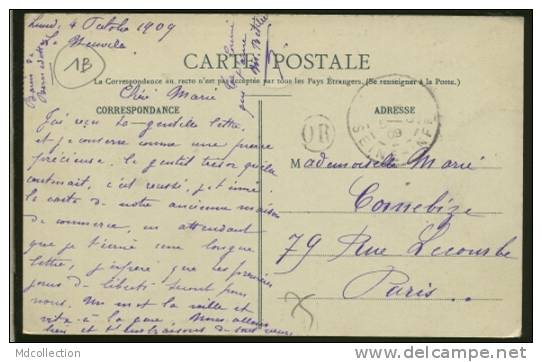 Lundi, 4 Octobre 1909
1B
CARTE POSTALE
La Correspondance au recto n'est pas acceptée par tous les Pays Étrangers. (Se renseigner à la Poste.)
CORRESPONDANCE
ADRESSE
Chère Marie
J'ai reçu ta gentille lettre,
et je conserve comme une pierre
précieuse. Le gentil trésor qu'elle
contenait, c'est reussi, je t'envoie
la carte de notre ancienne maison
de commerce, en attendant
que je t'écrive une longue
lettre, j'espère que les premiers
jours de liberté seront pour
nous. Un mot la veille et
vite à la gare. Nous allons
bien et
OR
SEINE
09
Mademoiselle Marie
Cornebize
79 Rue Lecourbe
Paris
MDcollection
www.delcampe.net